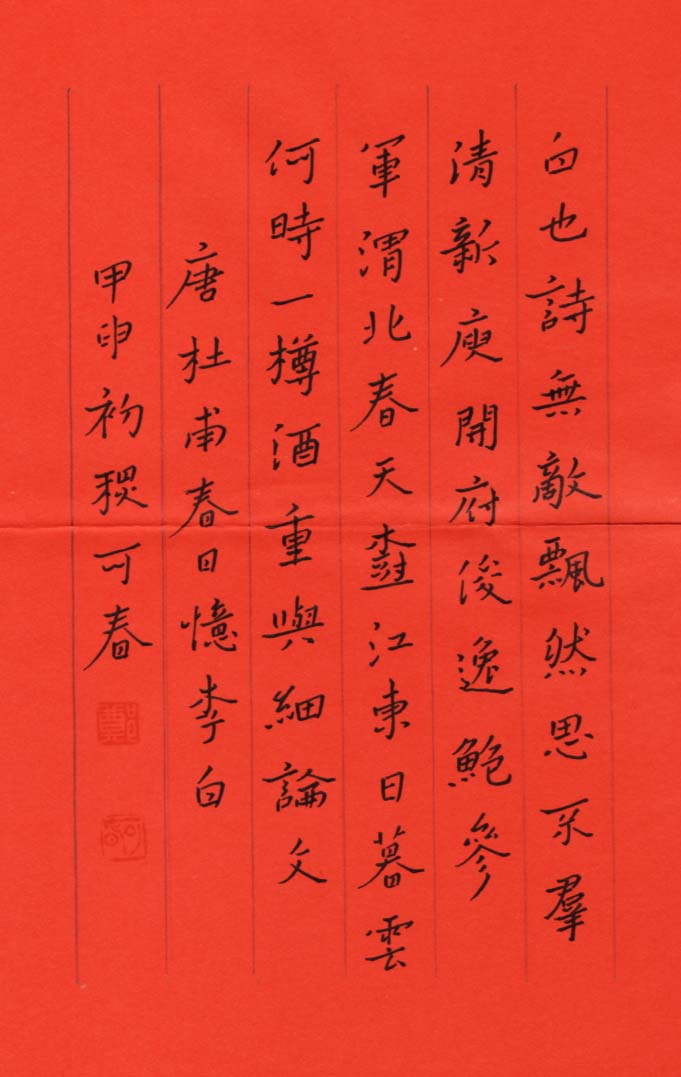 白也詩無敵飄然思不羣
清新庾開府俊逸鮑參
軍渭北春天樹江東日暮雲
何時一樽酒重與細論文
唐杜甫春日憶李白
甲申初可春